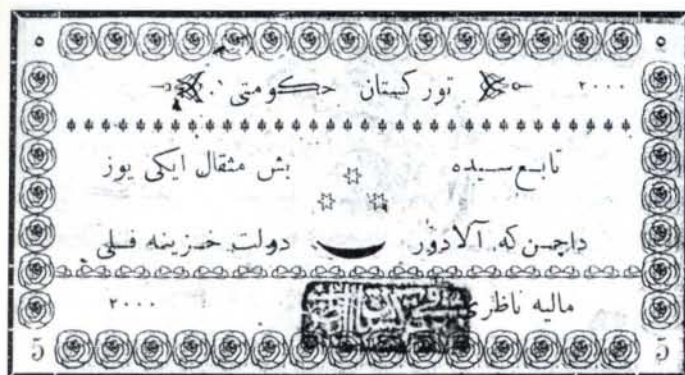 ٥ ٥
تورکستان حکومتی ٢٠٠٠
تابع سیده بش مثقال ایکی یوز
داچن که آلادور دولت خزینه فلی
مالیه ناظری ٢٠٠٠
5 5